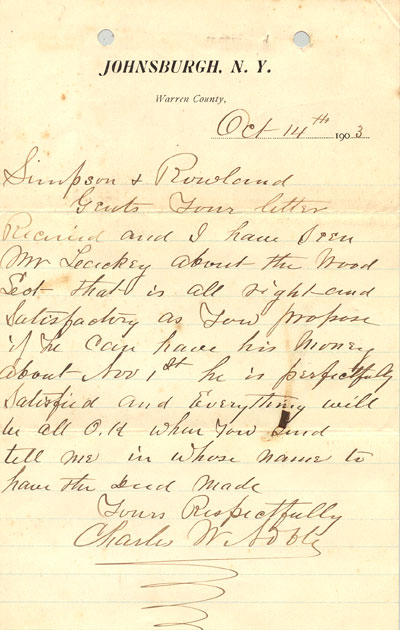 JOHNSBURGH, N. Y.
Warren County,
Oct 14th 1903
Simpson & Rowland
Gents Your letter
Recieved and I have seen
Mr Leackey about the Wood
Lot that is all right and
Satisfactory as You propose
if he can have his Money
about Nov 1st he is perfectfully
Satisfied and Everything will
be all O.K when You send
tell me in whose name to
have the Deed made
Yours Respectfully
Charles W. Noble